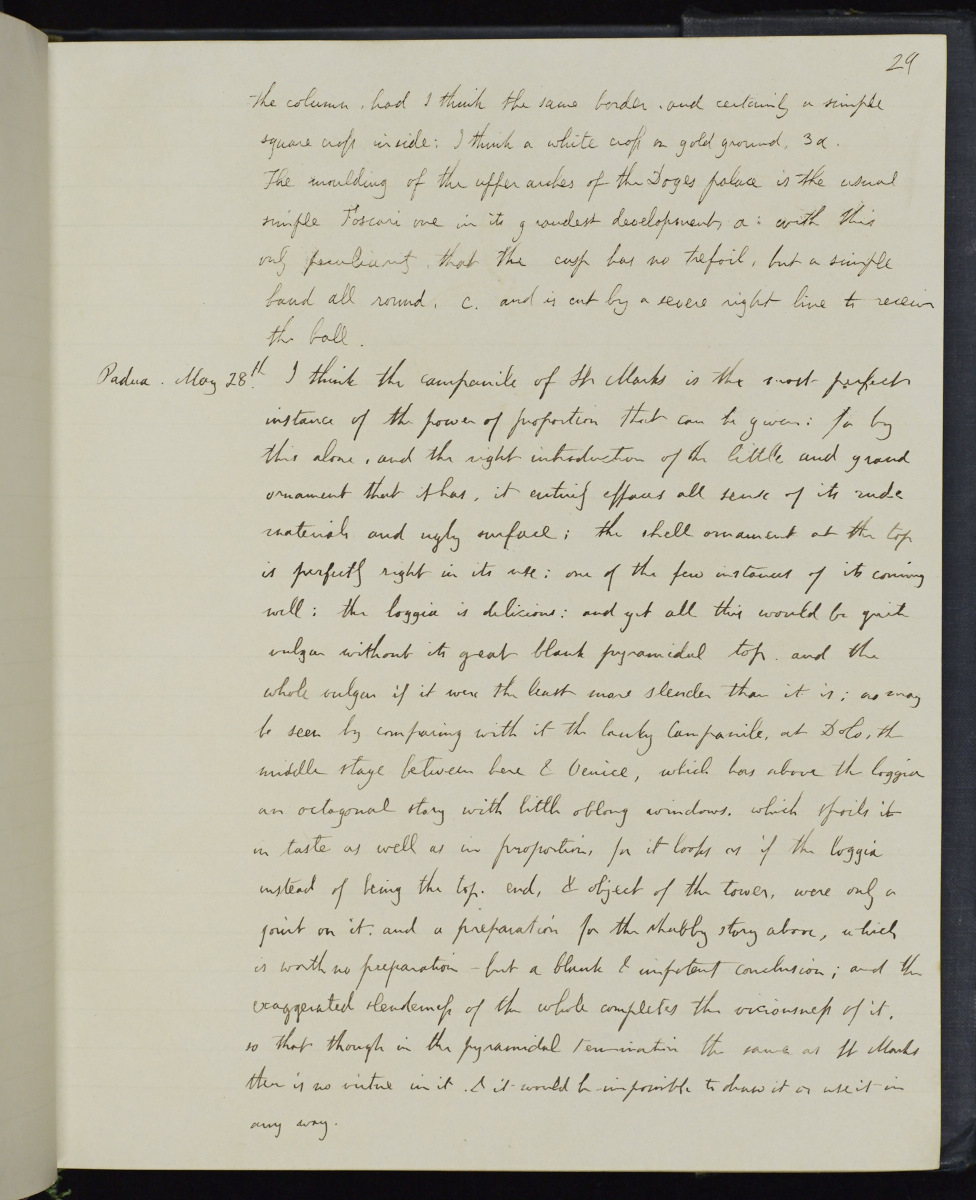 29
the column, had I think the same border, and certainly a simple
square cross inside: I think a white cross on gold ground, 3a.
The moulding of the upper arches of the Doges palace is the usual
simple Foscari one in its grandest development, a: with this
only peculiarity, that the cusp has no trefoil, but a simple
band all round, c. and is cut by a severe right line to receive
the ball.
Padua. May 28th. I think the campanile of St Marks is the most perfect
instance of the power of proportion that can be given: for by
this alone, and the right introduction of the little and grand
ornament that it has, it entirely effaces all sense of its rude
materials and ugly surface; the shell ornament at the top
is perfectly right in its use: one of the few instances of its coming
well: the loggia is delicious: and yet all this would be quite
vulgar without its great blank pyramidal top. and the
whole vulgar if it were the least more slender than it is; as may
be seen by comparing with it the lanky Campanile, at Dolo, the
middle stage between here & Venice, which has above the loggia
an octagonal story with little oblong windows. which spoils it
in taste as well as in proportion, for it looks as if the loggia
instead of being the top. end, & object of the tower, were only a
joint on it. and a preparation for the shabby story above, which
is worth no preparation - but a blank & impotent conclusion; and the
exaggerated slenderness of the whole completes the viciousness of it,
so that though in the pyramidal termination the same as St Marks
there is no virtue in it. & it would be impossible to draw it or use it in
any way.